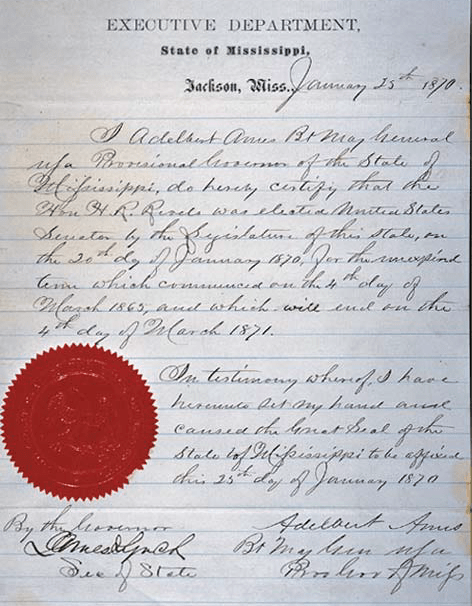 EXECUTIVE DEPARTMENT,
State of Mississippi,
Jackson, Miss., January 25th 1870.
I Adelbert Ames Bt Maj General
USA Provisional Governor of the State of
Mississippi, do hereby certify that the
Hon H. R. Revels was elected United States
Senator by the Legislature of this State, on
the 20th day of January 1870, for the unexpired
term which commenced on the 4th day of
March 1865, and which will end on the
4th day of March 1871.
In testimony whereof, I have
hereunto set my hand and
caused the Great Seal of the
State of Mississippi to be affixed
this 25th day of January 1870
By the Governor
James Lynch
Sec of State
Adelbert Ames
Bt Maj Gen USA
Pro Gov of Miss